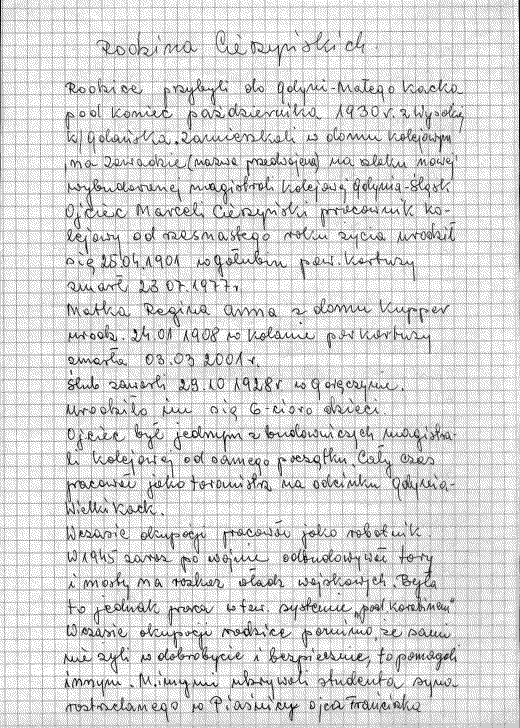 Rodzina Cierzyńskich.
Rodzice przybyli do Gdyni-Małego Kacka
pod koniec października 1930 r. z Wysokiej
k/Gdańska. Zamieszkali w domu kolejowym
na Zawadzie (nazwa przedwojenna) na szlaku nowej
wybudowanej magistrali kolejowej Gdynia-Śląsk
Ojciec Marceli Cierzyński pracownik ko-
lejowy od szesnastego roku życia urodził
się 25.04.1901 w Gołubiu pow. Kartuzy
zmarł 23 07.1977r
Matka Regina Anna z domu Kupper
urodz. 24.01 1908 w Kolanie pow Kartuzy
zmarła 03.03 2001 r.
Ślub zawarli 29.10 1928r w Goręczynie.
Urodziło im się 6-cioro dzieci.
Ojciec był jednym z budowniczych magistra-
li kolejowej od samego początku. Cały czas
pracował jako toromistrz na odcinku Gdynia-
Wielki Kack.
Wczasie okupacji pracował jako robotnik.
W 1945 zaraz po wojnie odbudowywał tory
i mosty na rozkaz władz wojskowych. Była
to jednak praca w tzw. systemie „pod karabinem"
Wczasie okupacji rodzice pomimo, że sami
nie żyli w dobrobycie i bezpiecznie, to pomagali
innym. M.innymi ukrywali studenta syna
rozstrzelanego w Piaśnicy ojca Franciszka